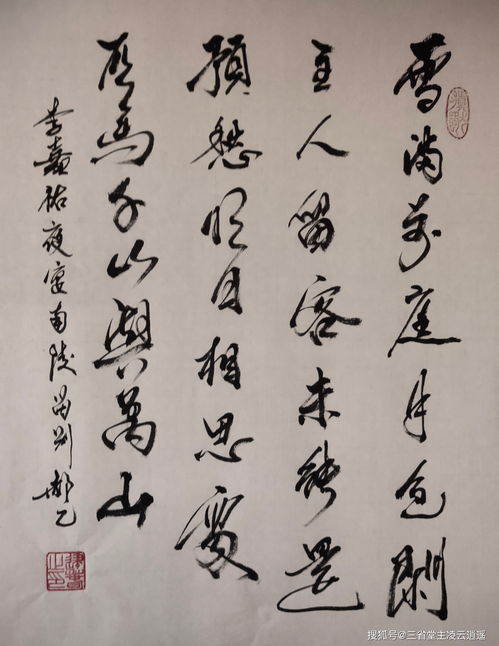 雪滿前庭月色閑
主人留客未能還
預愁明日相思處
匹馬千山與萬山
李嘉祐夜宴南陵留别
搜狐号@三省堂主凌云逍遥